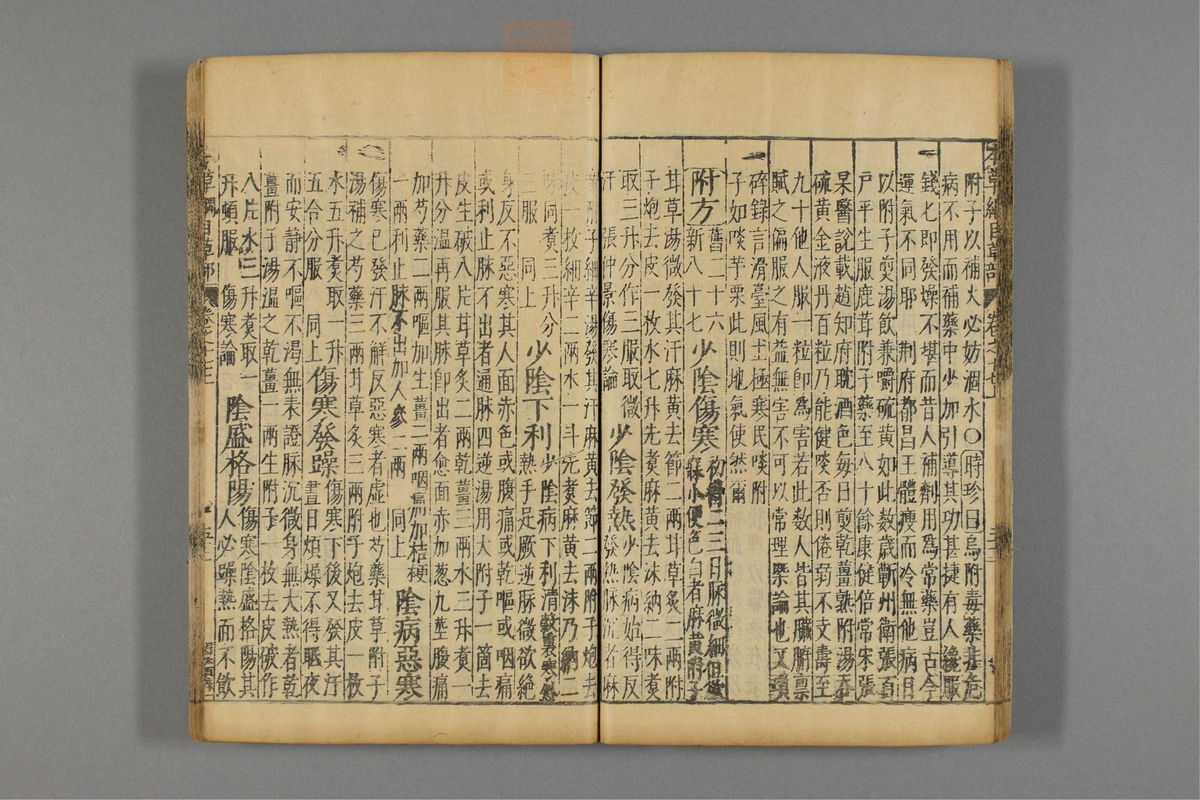 本草綱目草部 卷之十七
附子以補火必妨涸水○時珍曰烏附毒藥非危
病不用而補藥中少加引導其功甚捷有人纔服
錢匕即發燥不堪而昔人補劑用爲常藥豈古今
運氣不同耶荆府都昌王體瘦而冷無他病日
以附子煎湯飲兼嚼硫黃如此數歲蘄州衛張百
戶平生服鹿茸附子藥至八十餘康健倍常宋張
杲醫說載趙知府耽酒色每日煎乾薑熟附湯吞
硫黃金液丹百粒乃能健啖否則倦弱不支壽至
九十他人服一粒即爲害若此數人皆其臟腑禀
賦之偏服之有益無害不可以常理槩論也又瑣
碎錄言滑臺風土極寒民啖附
子如啖芋栗此則地氣使然爾
附方 舊二十六 新八十七 少陰傷寒 初得二三日脉微細但欲
寐小便色白者麻黃附子
甘草湯微發其汗麻黃去節二兩甘草炙二兩附
子炮去皮一枚水七升先煮麻黃去沫納二味煮
取三升分作三服取微
汗張仲景傷寒論 少陰發熱 少陰病始得反
發熱脉沉者麻
黃附子細辛湯發其汗麻黃去節二兩附子炮去
皮一枚細辛二兩水一斗先煮麻黃去沫乃納二
味同煮三升分
三服 同上 少陰下利 少陰病下利清穀裏寒外
熱手足厥逆脉微欲絕
身反不惡寒其人面赤色或腹痛或乾嘔或咽痛
或利止脉不出者通脉四逆湯用大附子一箇去
皮生破八片甘草炙二兩乾薑三兩水三升煮一
升分溫再服其脉即出者愈面赤加葱九莖腹痛
加芍藥二兩嘔加生薑二兩咽痛加桔梗
一兩利止脉不出加人參二兩 同上 陰病惡寒
傷寒已發汗不解反惡寒者虛也芍藥甘草附子
湯補之芍藥三兩甘草炙三兩附子炮去皮一枚
水五升煮取一升
五合分服 同上 傷寒發躁 傷寒下後又發其汗
晝日煩燥不得眠夜
而安靜不嘔不渴無表證脉沉微身無大熱者乾
薑附子湯溫之乾薑一兩生附子一枚去皮破作
八片水三升煮取一
升頓服 傷寒論 陰盛格陽 傷寒陰盛格陽其
人必躁熱而不飲
本草綱目草部 卷之十七